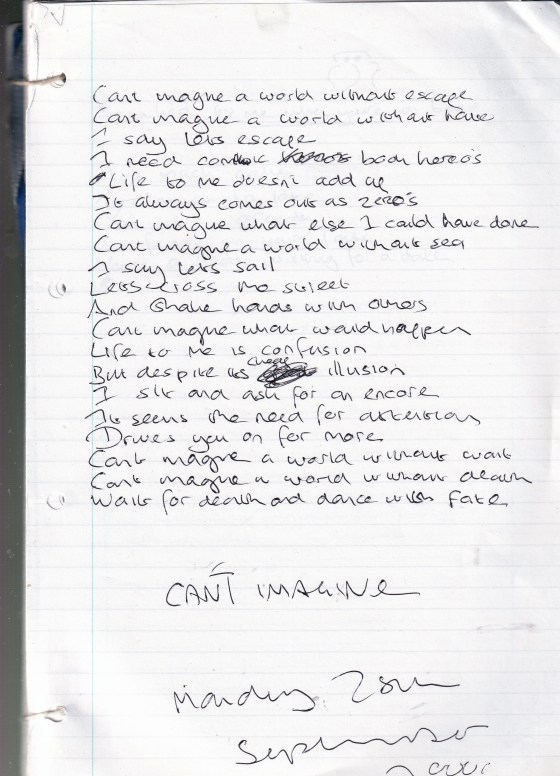 Cant imagine a world without escape
Cant imagine a world without hate
I say lets escape
I need comic book heroe's
Life to me doesnt add up
It always comes out as zero's
Cant imagine what else I could have done
Cant imagine a world without sea
I say lets sail
Lets cross the street
And shake hands with others
Cant imagine what would happen
Life to me is confusion
But despite its cheap illusion
I sit and ask for an encore
It seems the need for attention
Drives you on for more
Cant imagine a world without wait
Cant imagine a world without death
Wait for death and dance with fate
CAN'T IMAGINE
Monday
September